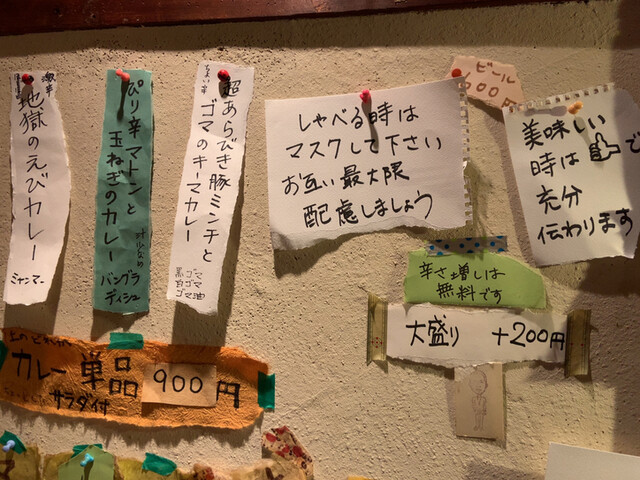 激辛
地獄のえびカレー
ミャンマー
ぴり辛マトンと
玉ねぎのカレー
汁少なめ
バングラ
ディシュ
ちょい辛
超あらびき豚ミンチと
ゴマのキーマカレー
黒ゴマ
白ゴマ
ゴマ油
しゃべる時は
マスクして下さい
お互い最大限
配慮しましょう
ビール
600円
美味しい
時は👍で
充分
伝わります
辛さ増しは
無料です
大盛り +200円
カレー単品 900円
サラダ付